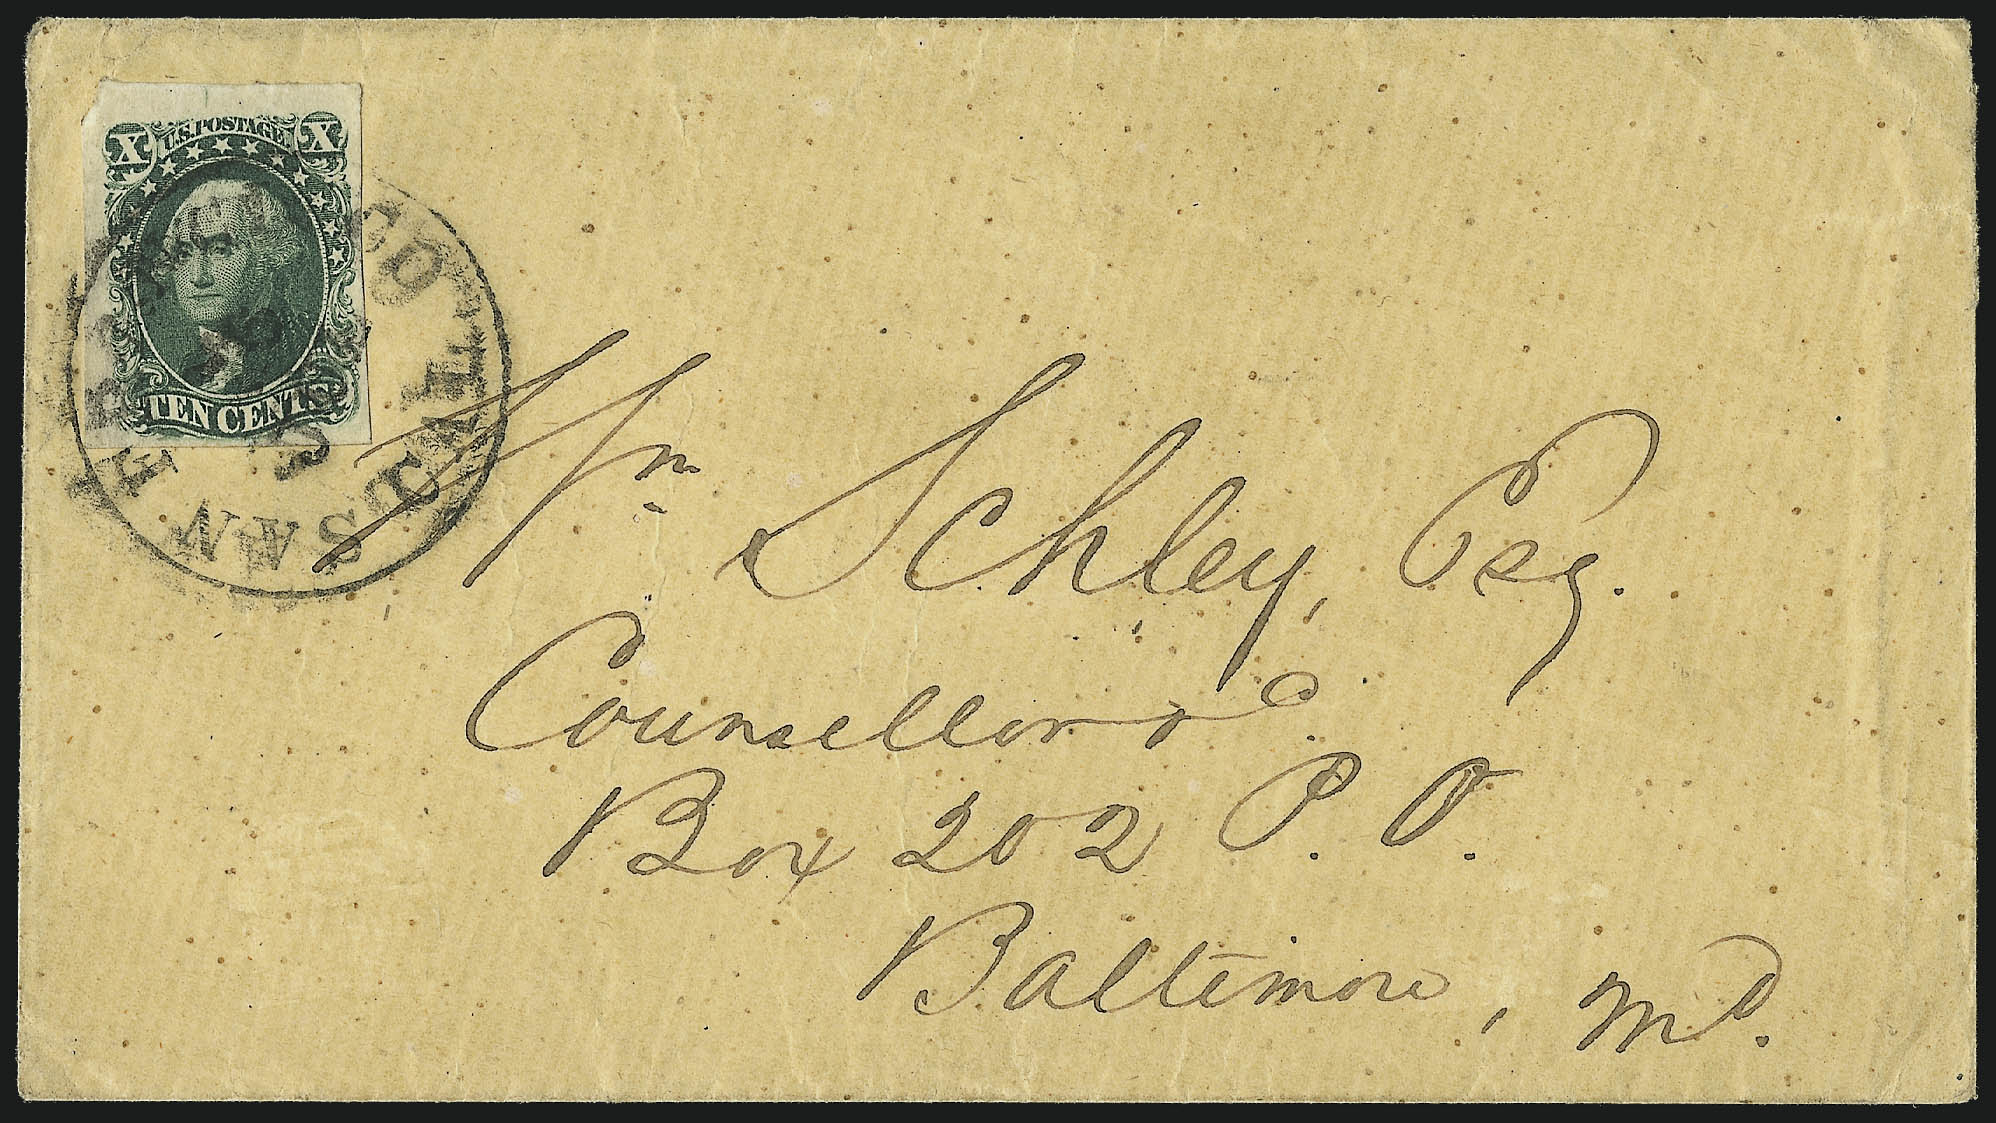 U.S. POSTAGE
X X
TEN CENTS
SAN FRANCISCO
Wm Schley, Esq.
Counsellor &c
Box 202 P. O.
Baltimore, Md.